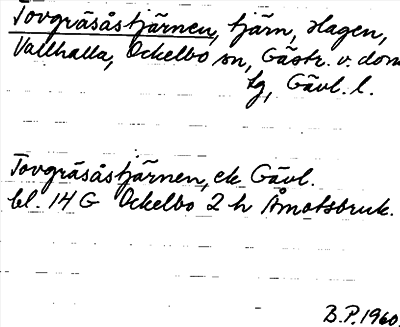 Tovgräsåstjärnen, tjärn, Hagen,
Vallhalla, Ockelbo sn, Gästr. v. dom
sg, Gävl. l.
Tovgräsåstjärnen, ek Gävl.
bl. 14 G Ockelbo 2 h Åmotsbruk.
B.P. 1960.